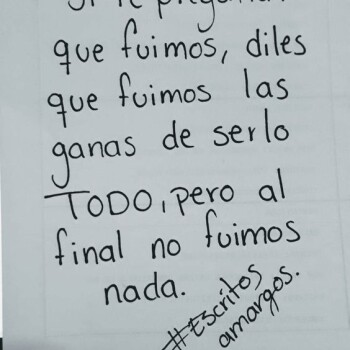 Si te preguntan
que fuimos, diles
que fuimos las
ganas de serlo
TODO, pero al
final no fuimos
nada.
#Escritos
amargos.